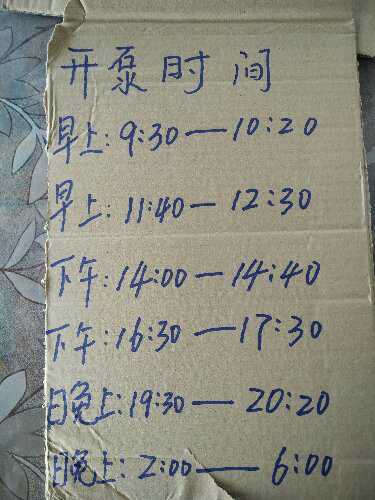 开泵时间
早上:9:30—10:20
早上:11:40—12:30
下午:14:00—14:40
下午:16:30—17:30
晚上:19:30—20:20
晚上:2:00—6:00